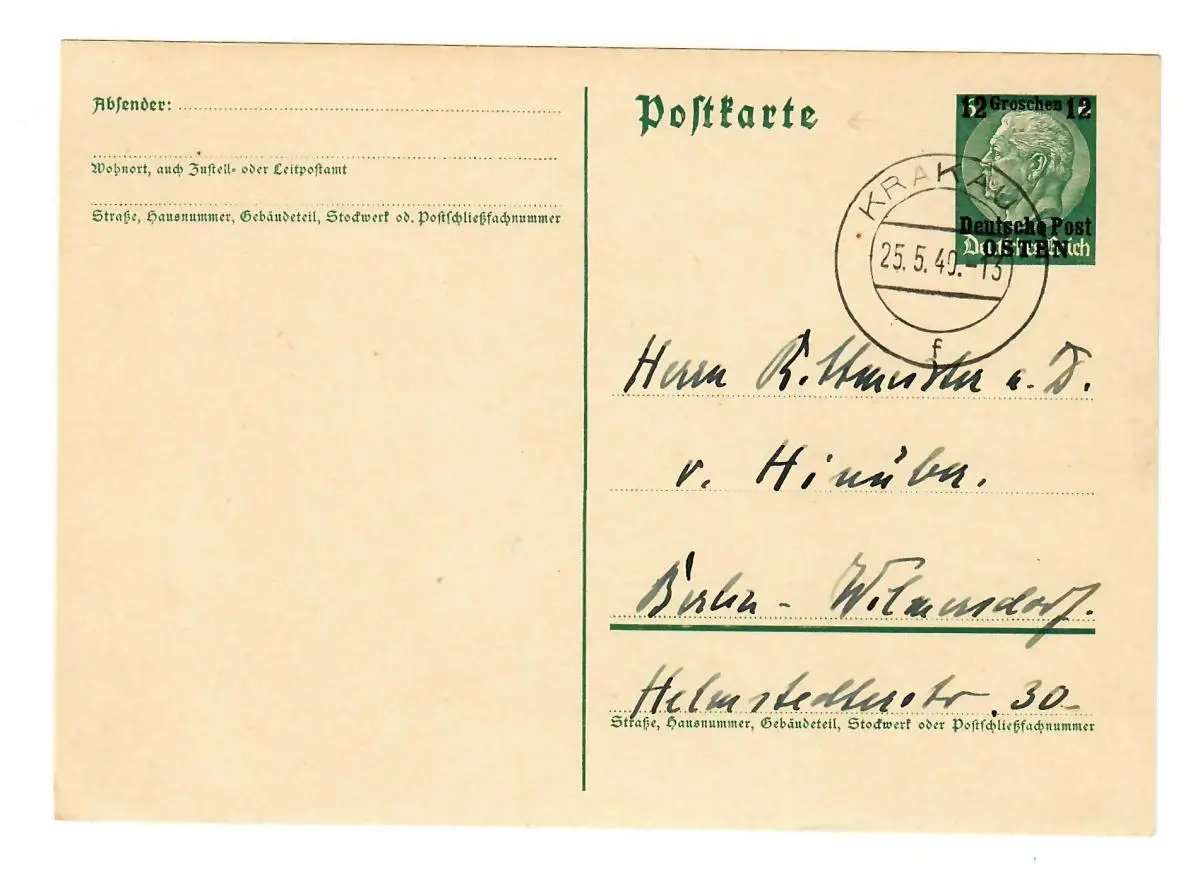 Absender:
Wohnort, auch Zustell- oder Leitpostamt
Straße, Hausnummer, Gebäudeteil, Stockwerk od. Postschließfachnummer
Postkarte
12 Groschen 12
Deutsche Post
OSTEN
Deutsches Reich
KRAKAU
25.5.40.-13
f
Herrn Rittmeister a. D.
v. Hinüber.
Berlin - Wilmersdorf.
Helmstedterstr. 30
Straße, Hausnummer, Gebäudeteil, Stockwerk oder Postschließfachnummer